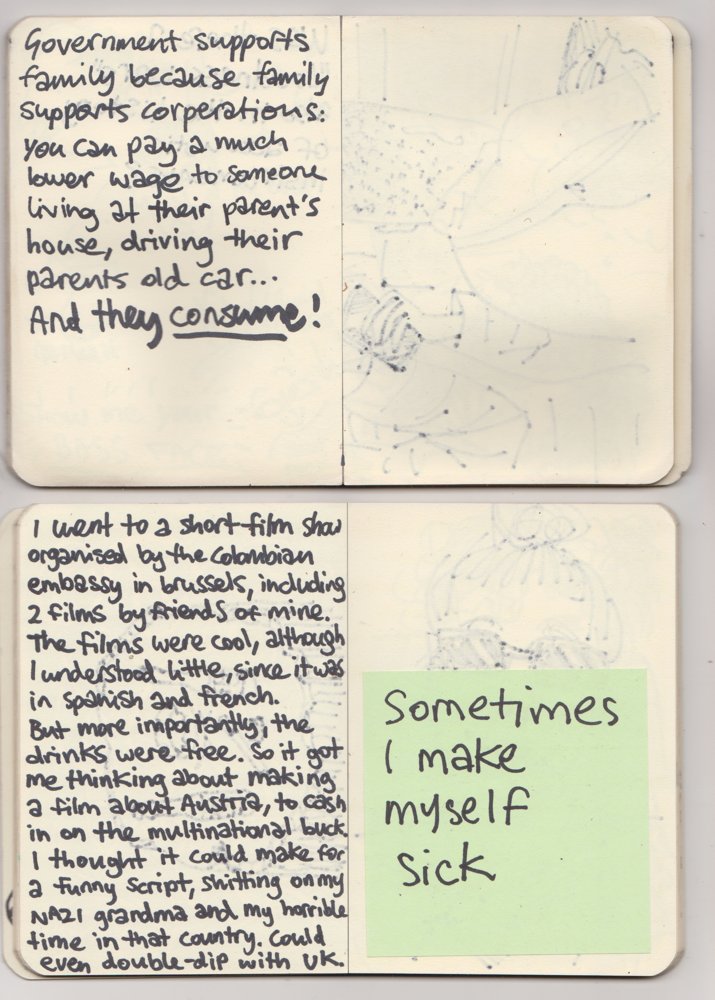 Government supports
family because family
supports corperations:
you can pay a much
lower wage to someone
living at their parent's
house, driving their
parents old car...
And they consume!
I went to a short film show
organised by the Colombian
embassy in brussels, including
2 films by friends of mine.
The films were cool, although
I understood little, since it was
in spanish and french.
But more importantly, the
drinks were free. So it got
me thinking about making
a film about Austria, to cash
in on the multinational buck.
I thought it could make for
a funny script, shitting on my
NAZI grandma and my horrible
time in that country. Could
even double-dip with UK.
Sometimes
I make
myself
sick